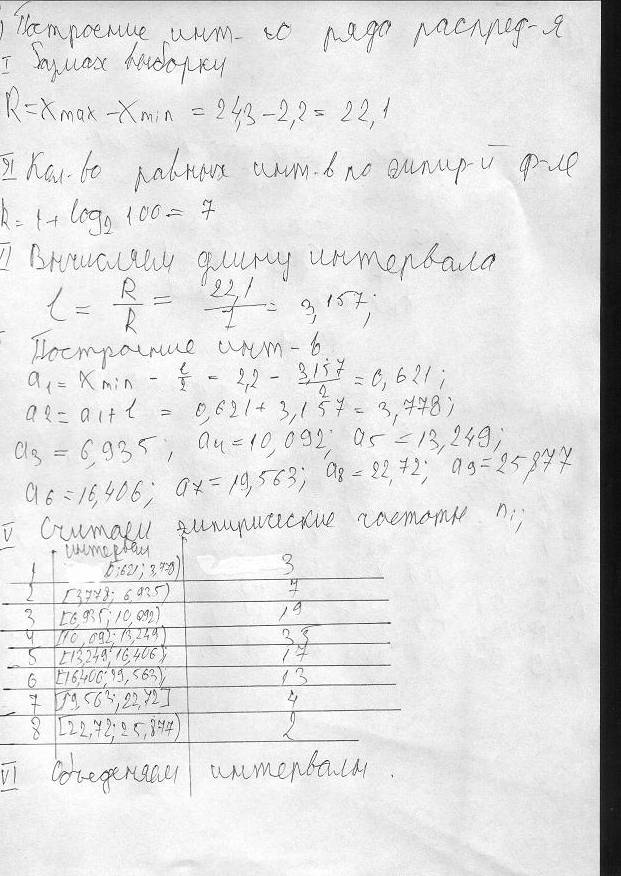 ) Построение инт-го ряда распред-я
I Размах выборки
R = Xmax - Xmin = 24,3 - 2,2 = 22,1
II Кол-во равных инт-в по эмпир-й ф-ле
k = 1 + log2 100 = 7
Вычисляем длину интервала
l = R/k = 22,1/7 = 3,157;
Построение инт-в
a1 = Xmin - l/2 = 2,2 - 3,157/2 = 0,621;
a2 = a1 + l = 0,621 + 3,157 = 3,778;
a3 = 6,935; a4 = 10,092; a5 = 13,249;
a6 = 16,406; a7 = 19,563; a8 = 22,72; a9 = 25,877
V Считаем эмпирические частоты ni;
интервал
1 0,621; 3,778) 3
2 [3,778; 6,935) 7
3 [6,935; 10,092) 19
4 [10,092; 13,249) 35
5 [13,249; 16,406); 17
6 [16,406; 19,563); 13
7 [19,563; 22,72] 4
8 [22,72; 25,877) 2
VI Объеденяем интервалы.